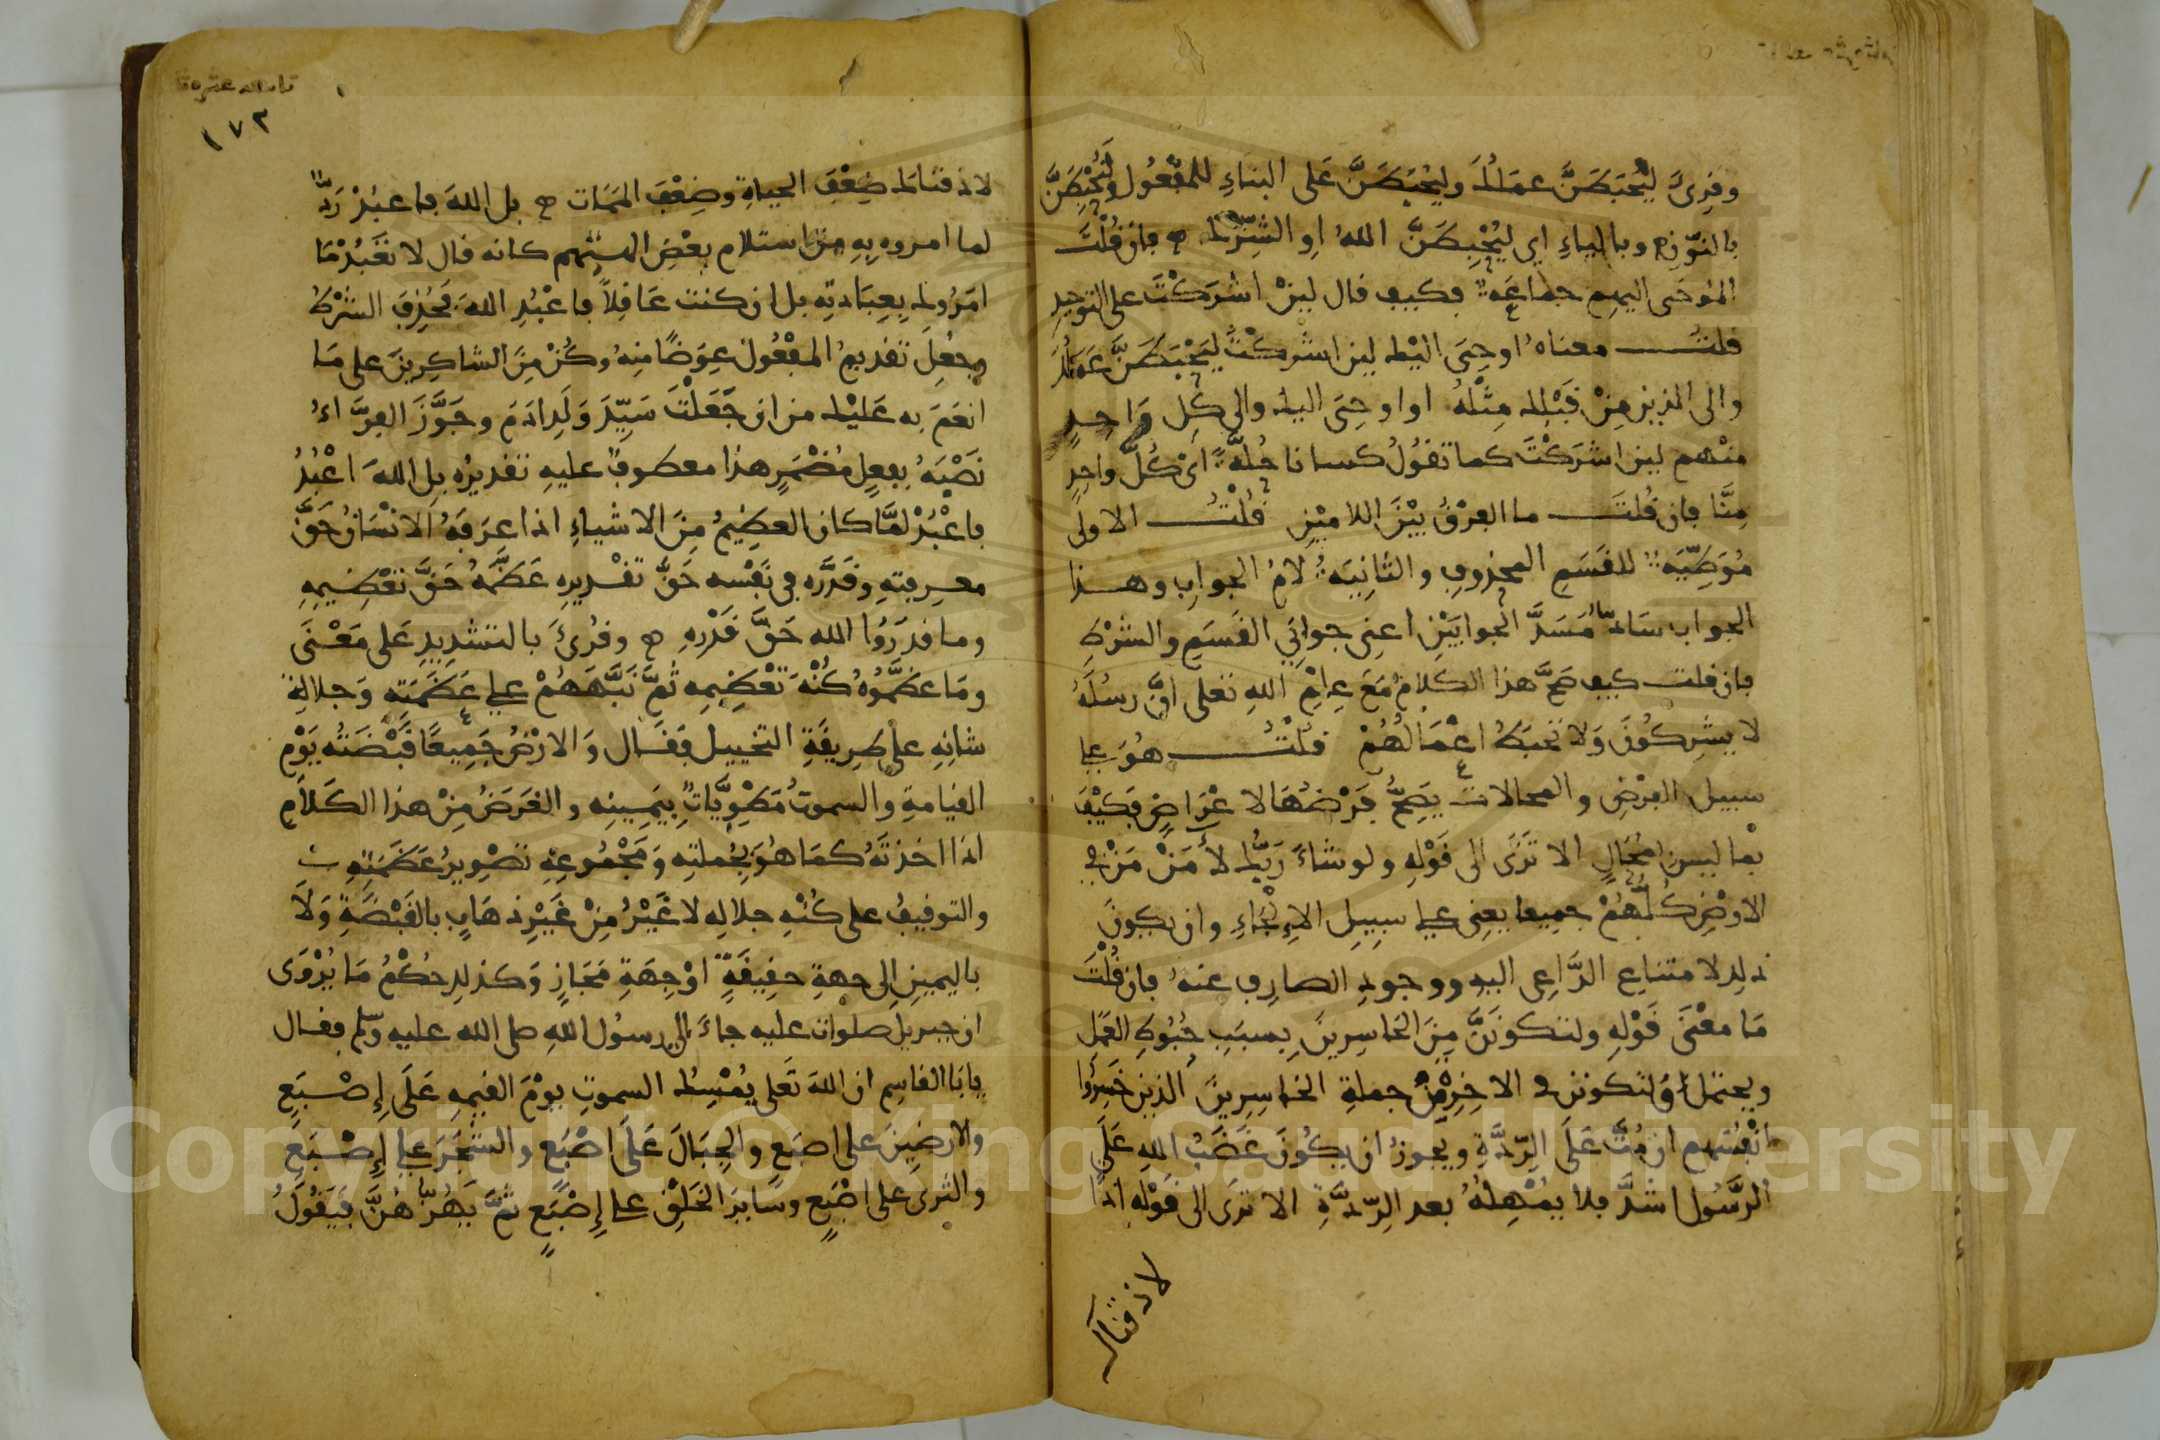 وقرئ ليحبطن عملك وليحبطن على البناء للمفعول ولنحبطن
بالنون وبالياء اي ليحبطن الله او الشرك فان قلت
الموحى اليهم جماعة فكيف قال لين اشركت على التوحيد
قلت معناه اوحى اليك لين اشركت ليحبطن عملك
والى الذين من قبلك مثله او اوحى اليك والى كل واحد
منهم لين اشركت كما تقول كسانا حلة اى كل واحد
منا فان قلت ما الفرق بين اللامين قلت الاولى
موطية للقسم المحذوف والثانية لام الجواب وهذا
الجواب ساد مسد الجوابين اعنى جوابي القسم والشرط
فان قلت كيف صح هذا الكلام مع علم الله تعلى ان رسله
لا يشركون ولا تحبط اعمالهم قلت هو على
سبيل الفرض والمحالات يصح فرضها لاغراض فكيف
بما ليس بمحال الا ترى الى قوله ولو شاء ربك لامن من في
الارض كلهم جميعا يعنى على سبيل الالجاء وان يكون
ذلك لامتناع الداعى اليه ووجود الصارف عنه فان قلت
ما معنى قوله ولتكونن من الخاسرين بسبب حبوط العمل
ويحتمل ولتكونن في الاخرة من جملة الخاسرين الذين خسروا
انفسهم ان مت على الردة ويجوز ان يكون غضب الله على
الرسول اشد فلا يمهله بعد الردة الا ترى الى قوله اذا
لاذقناك
١٧٣
لاذقناك ضعف الحياة وضعف الممات بل الله فاعبد رد
لما امروه به من استلام بعض الهتهم كانه قال لا تعبد ما
امروك بعبادته بل ان كنت عاقلا فاعبد الله فحذف الشرط
وجعل تقديم المفعول عوضا منه وكن من الشاكرين على ما
انعم به عليك من ان جعلت سيد ولد ادم وجوز الفراء
نصبه بفعل مضمر هذا معطوف عليه تقديره بل الله اعبد
فاعبد لما كان العظيم من الاشياء اذا عرفه الانسان حق
معرفته وقدره في نفسه حق تقديره عظمه حق تعظيمه
وما قدروا الله حق قدره وقرئ بالتشديد على معنى
وما عظموه كنه تعظيمه ثم نبههم على عظمته وجلالة
شانه على طريقة التخييل فقال والارض جميعا قبضته يوم
القيامة والسموت مطويات بيمينه والغرض من هذا الكلام
اذا اخذته كما هو بجملته ومجموعه تصوير عظمته
والتوقيف على كنه جلاله لا غير من غير ذهاب بالقبضة ولا
باليمين الى جهة حقيقة او جهة مجاز وكذلك حكم ما يروى
ان جبريل صلوات عليه جاء الى رسول الله صلى الله عليه وسلم فقال
يابا القاسم ان الله تعلى يمسك السموت يوم القيمه على إصبع
والارضين على اصبع والجبال على اصبع والشجر على إصبع
والثرى على اصبع وساير الخلق على إصبع ثم يهزهن فيقول
Copyright © King Saud University